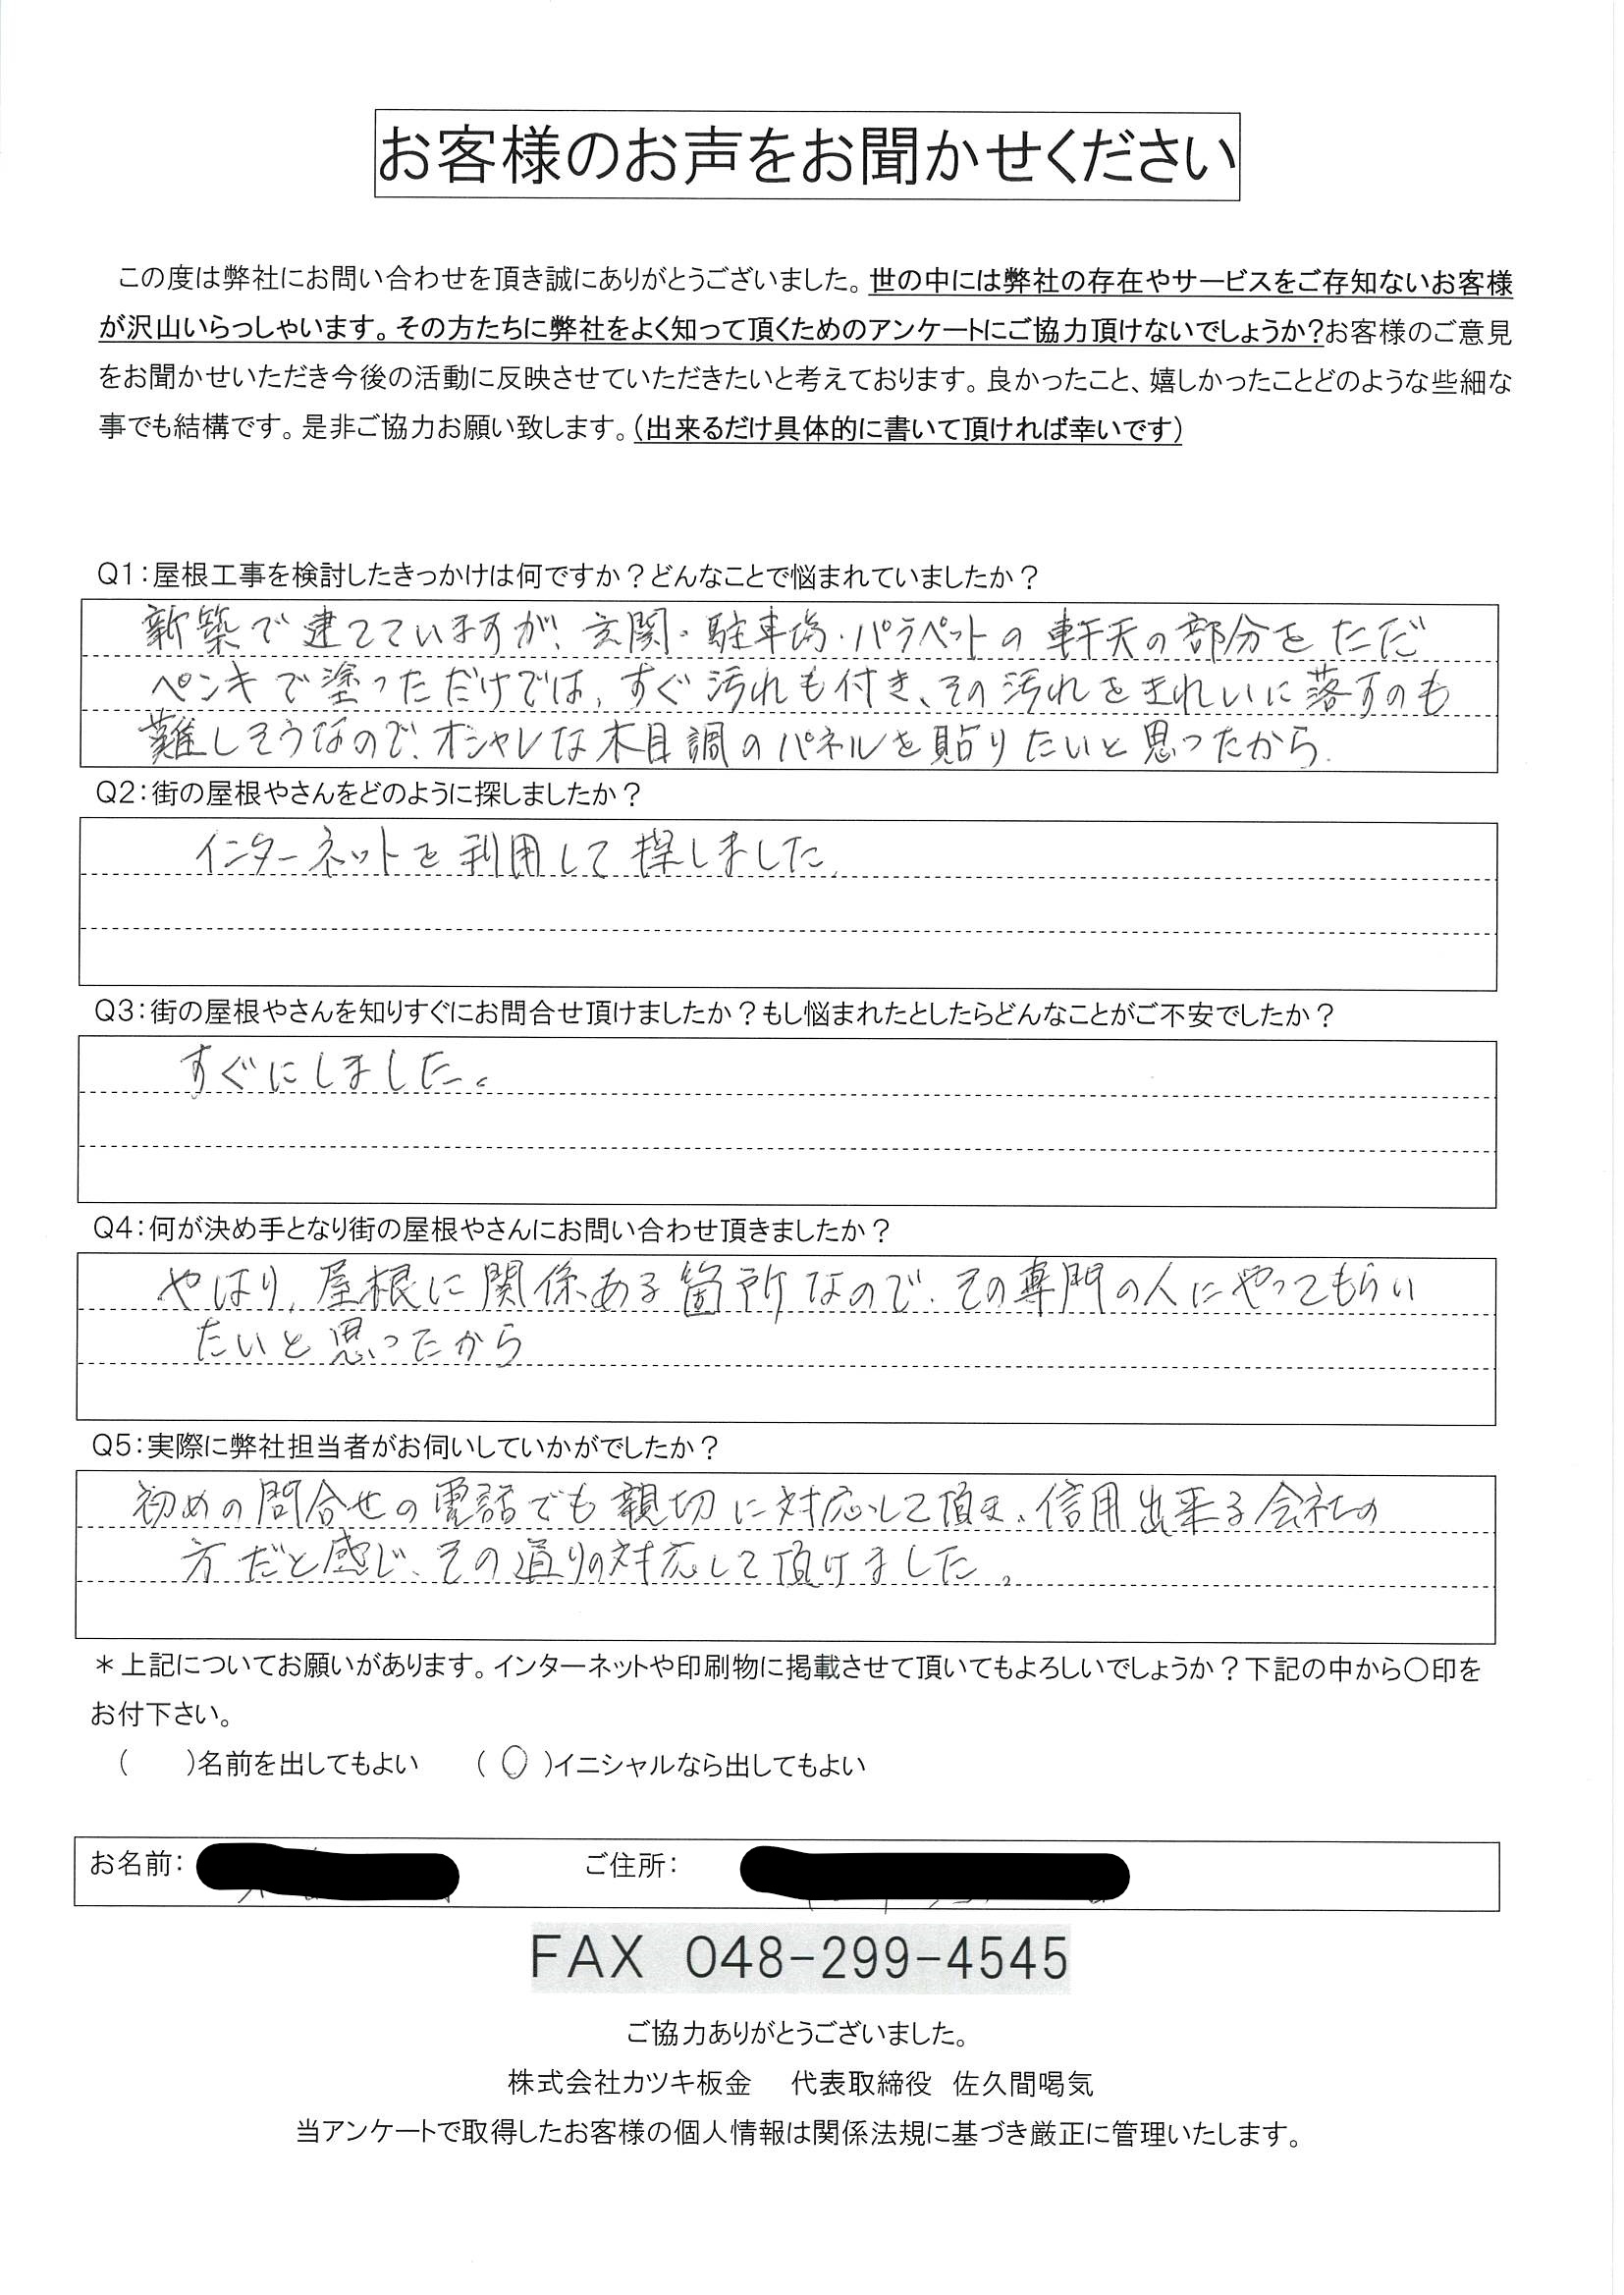 お客様のお声をお聞かせください
この度は弊社にお問い合わせを頂き誠にありがとうございました。世の中には弊社の存在やサービスをご存知ないお客様
が沢山いらっしゃいます。その方たちに弊社をよく知って頂くためのアンケートにご協力頂けないでしょうか?お客様のご意見
をお聞かせいただき今後の活動に反映させていただきたいと考えております。良かったこと、嬉しかったことどのような些細な
事でも結構です。是非ご協力お願い致します。(出来るだけ具体的に書いて頂ければ幸いです)
Q1:屋根工事を検討したきっかけは何ですか?どんなことで悩まれていましたか?
新築で建てていますが、玄関・駐車場・パラペットの軒天の部分をただ
ペンキで塗っただけでは、すぐ汚れも付き、その汚れをきれいに落すのも
難しそうなので、オシャレな木目調のパネルを貼りたいと思ったから.
Q2:街の屋根やさんをどのように探しましたか?
インターネットを利用して探しました.
Q3:街の屋根やさんを知りすぐにお問合せ頂けましたか?もし悩まれたとしたらどんなことがご不安でしたか?
すぐにしました。
Q4:何が決め手となり街の屋根やさんにお問い合わせ頂きましたか?
やはり、屋根に関係ある箇所なので、その専門の人にやってもらい
たいと思ったから
Q5:実際に弊社担当者がお伺いしていかがでしたか?
初めの問合せの電話でも親切に対応して頂き、信用出来る会社の
方だと感じ、その通りの対応して頂けました。
*上記についてお願いがあります。インターネットや印刷物に掲載させて頂いてもよろしいでしょうか?下記の中から〇印を
お付下さい。
(　　)名前を出してもよい　　(〇)イニシャルなら出してもよい
お名前:　　ご住所:
FAX 048-299-4545
ご協力ありがとうございました。
株式会社カツキ板金　代表取締役 佐久間喝気
当アンケートで取得したお客様の個人情報は関係法規に基づき厳正に管理いたします。